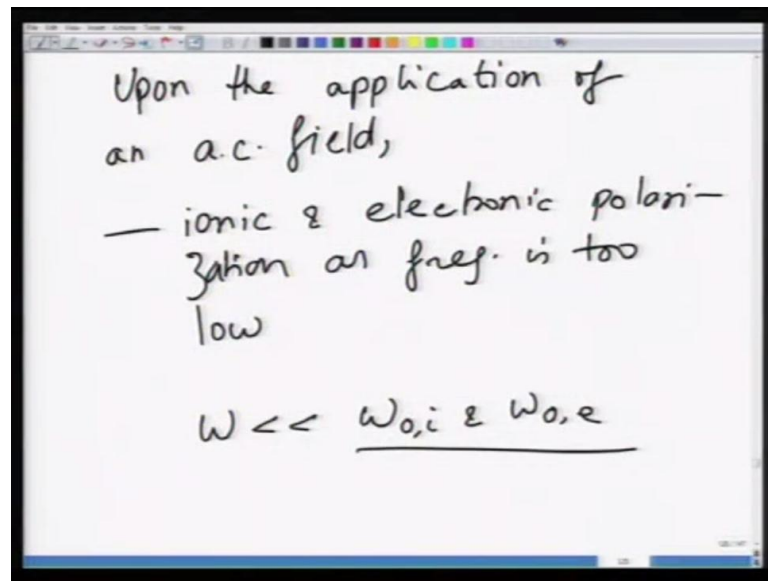 Upon the application of
an a.c. field,
— ionic & electronic polari-
zation as freq. is too
low
ω << ω0,i & ω0,e